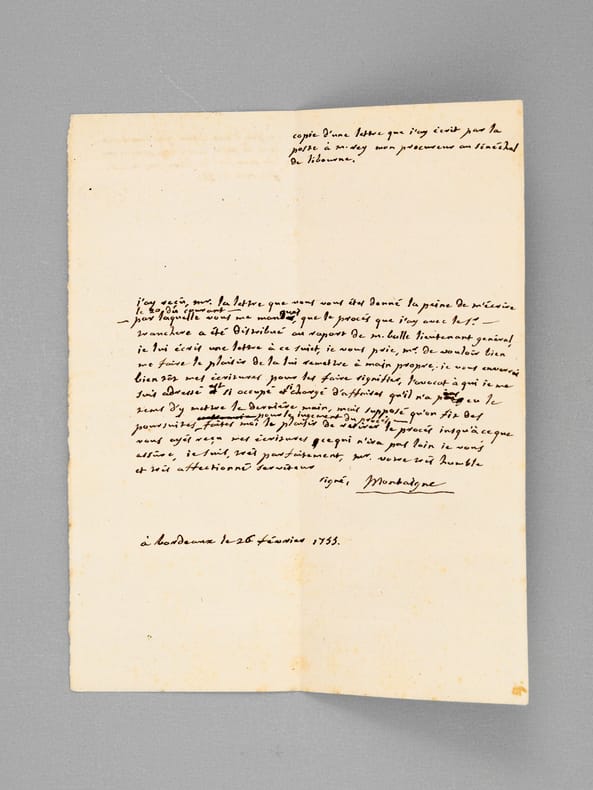 copie d'une lettre que j'ay écrit par la
poste à mr. rey mon procureur au sénéchal
de libourne.
j'ay reçu, mr. la lettre que vous vous êtes donné la peine de m'écrire
le 20 du courant
par laquelle vous me mandés, que le procès que j'ay avec le sr.
tranchere a été distribué au raport de m. balle lieutenant général,
je lui écris une lettre à ce sujet, je vous prie, mr. de vouloir bien
me faire le plaisir de la lui remettre à main propre, je vous envoirés
bien tôt mes écritures pour les faire signifier, l'avocat à qui je me
suis adressé est si occupé et chargé d'affaires qu'il n'a pas eu le
tems d'y mettre la dernière main, mais supposé qu'on fit des
pour le jugement du procès
poursuites, faites moi le plaisir de retirer le procès jusqu'à ce que
vous ayés reçu mes écritures, ce qui n'ira pas loin je vous
assûre, je suis, très parfaitement, mr. votre très humble
et très affectionné serviteur
signé, Montaigne
à bordeaux le 26 février 1755.